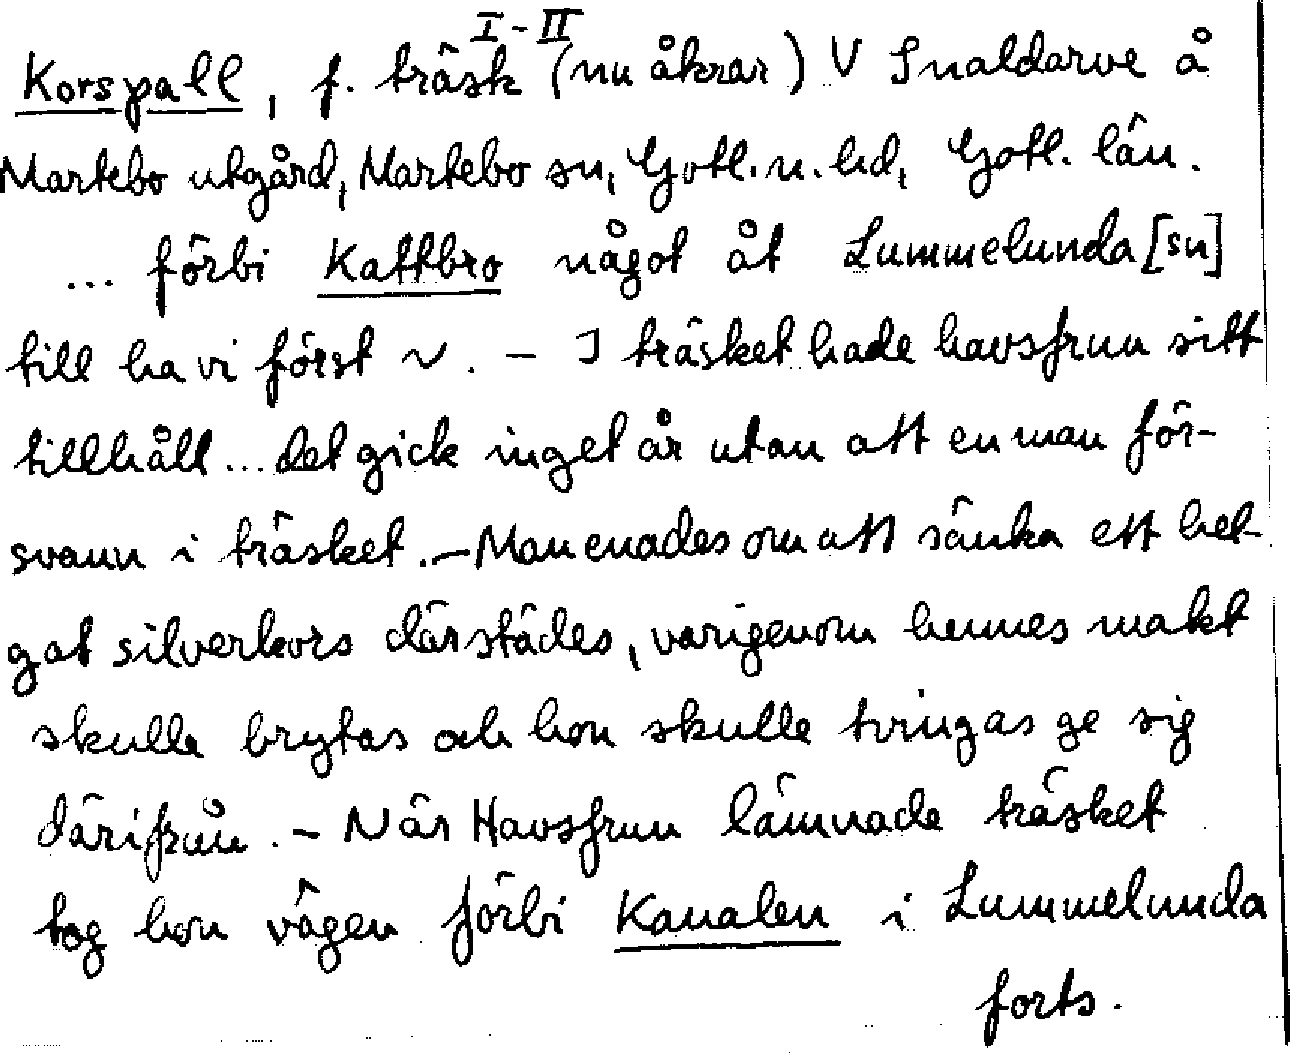 I - II
Korspall, f. träsk (nu åkrar) V Snaldarve å
Martebo utgård, Martebo sn, Gotl. n. hd, Gotl. län.
... förbi Kattbro något åt Lummelunda [sn]
till ha vi först ~. - I träsket hade havsfrun sitt
tillhåll ... det gick inget år utan att en man för-
svann i träsket. - Man enades om att sänka ett hel-
gat silverkors därstädes, varigenom hennes makt
skulle brytas och hon skulle tvingas ge sig
därifrån. - När Havsfrun lämnade träsket
tog hon vägen förbi Kanalen i Lummelunda
forts.